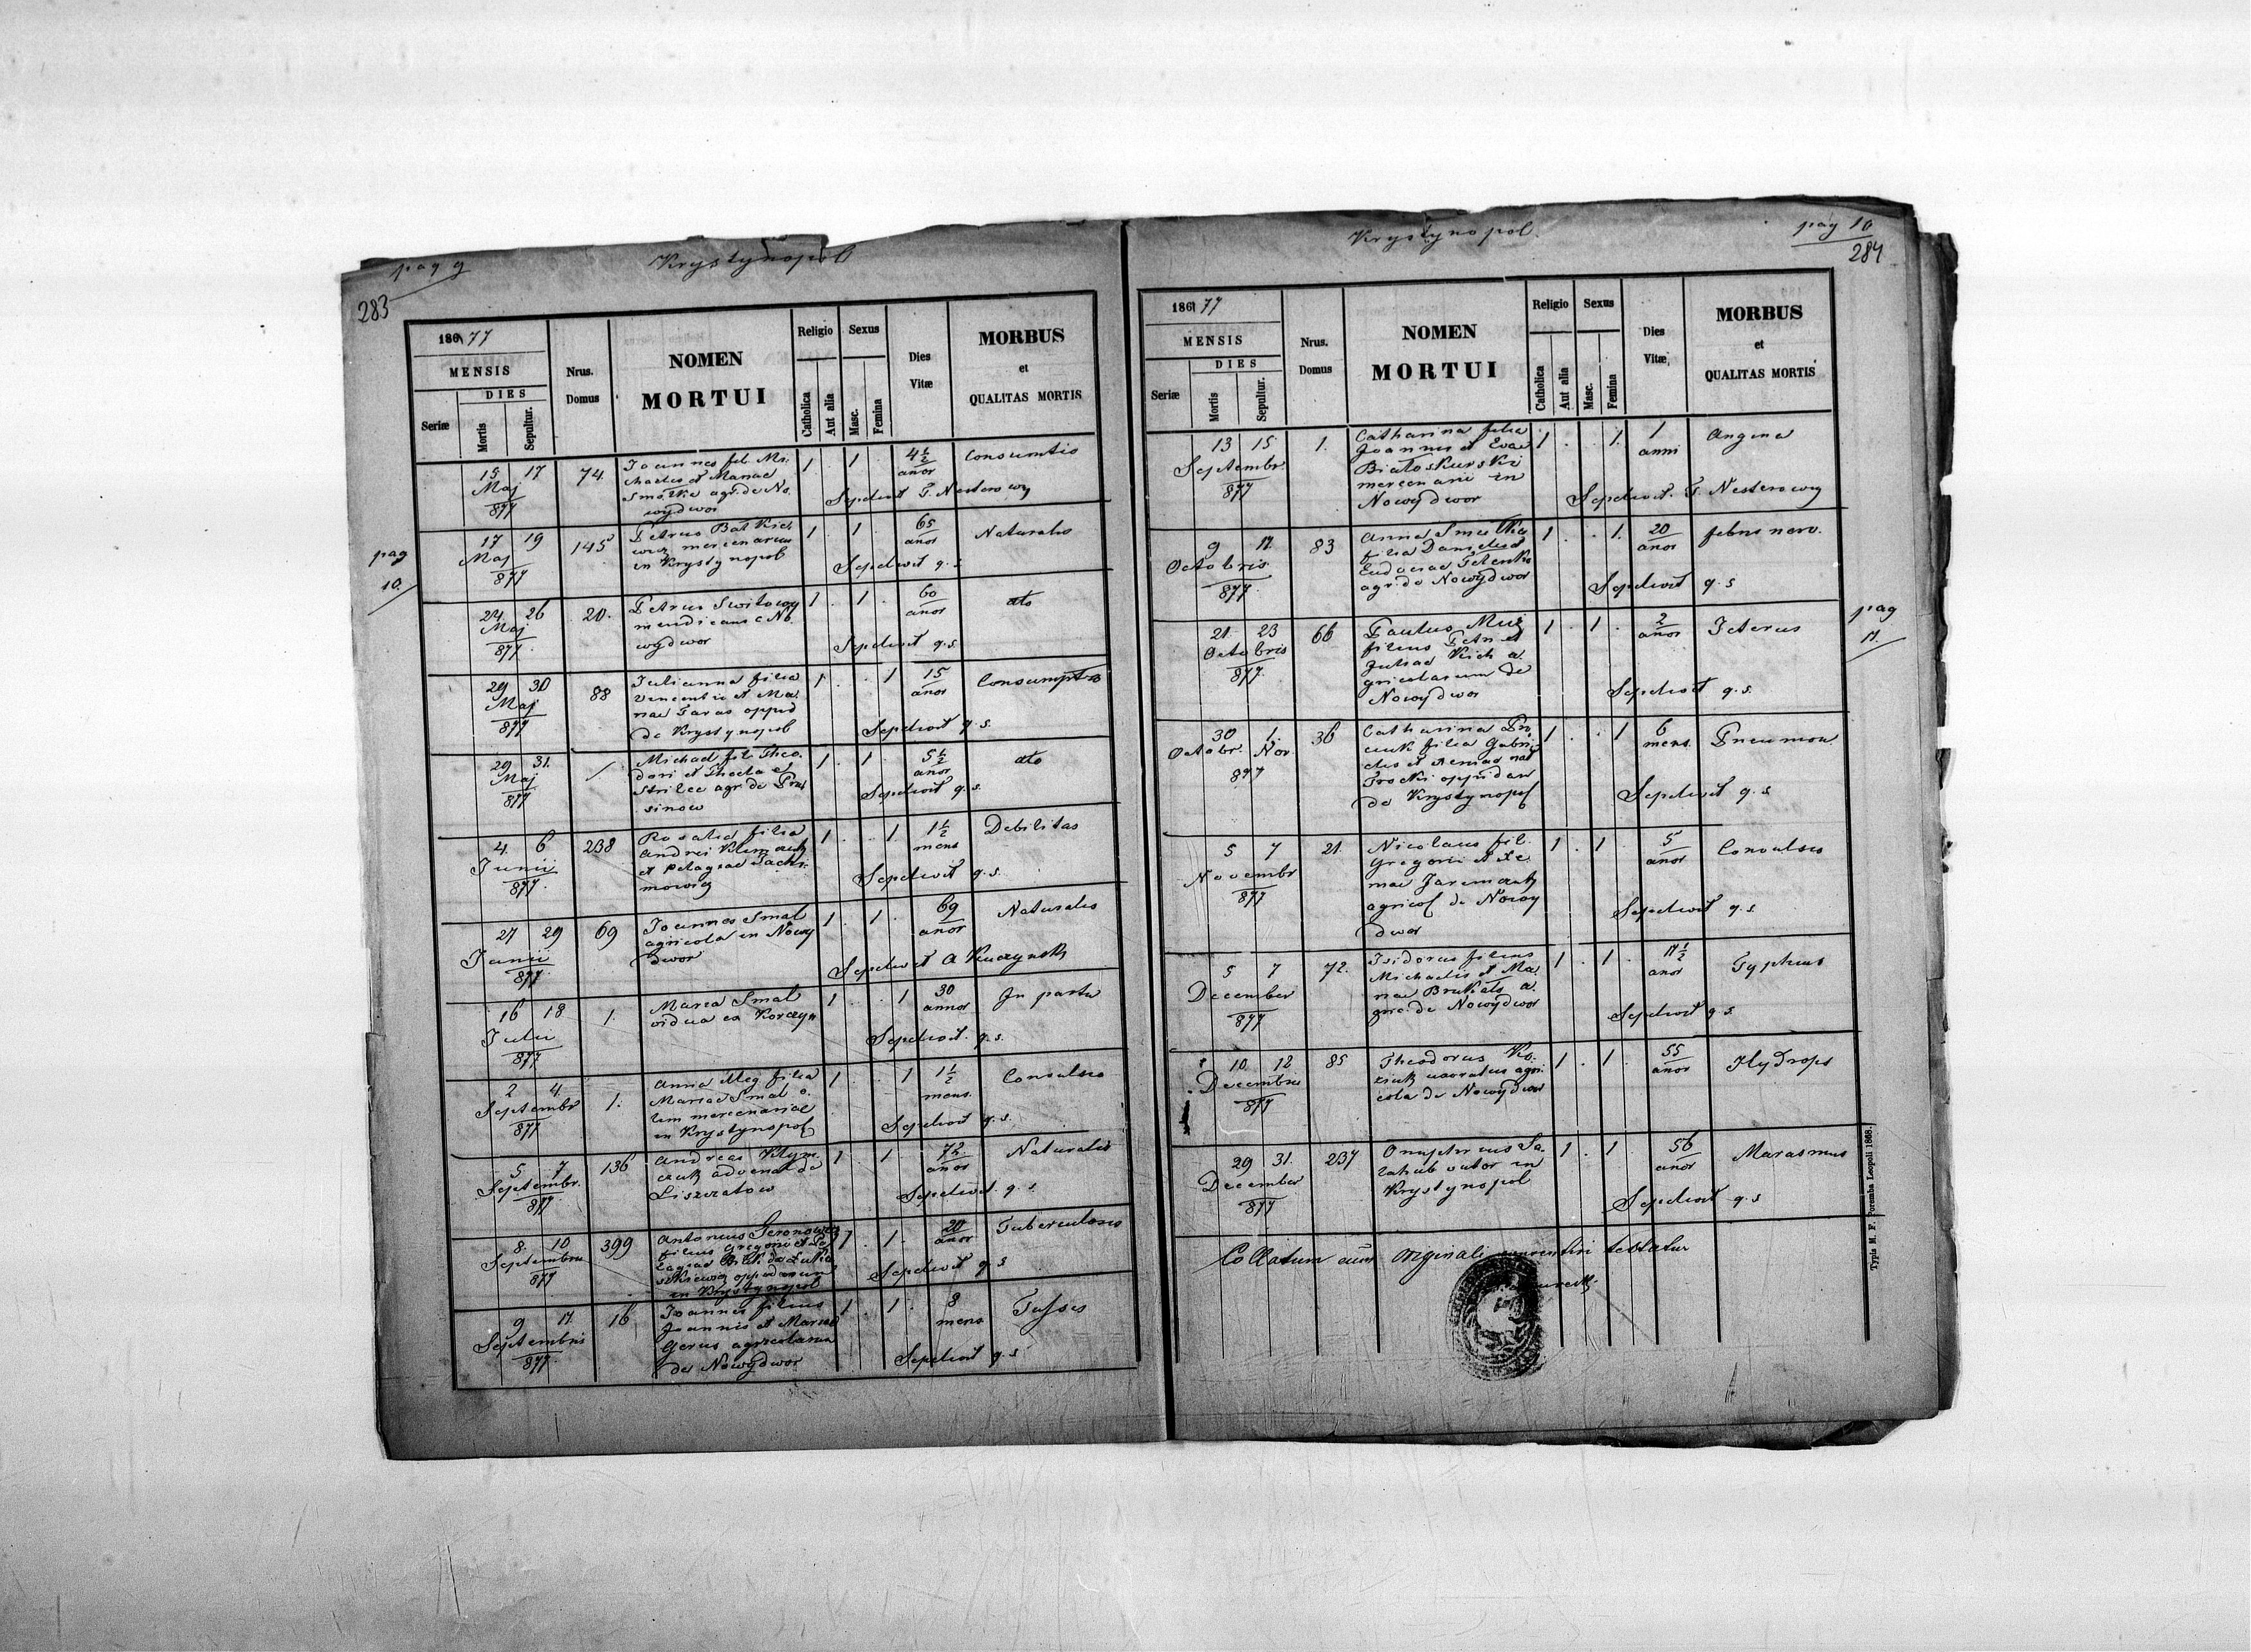 pag 9
Krystynopol
283
186 77
MENSIS
DIES
Seriæ
Mortis
Sepultur.
Nrus.
Domus
NOMEN
MORTUI
Religio
Catholica
Aut alia
Sexus
Masc.
Femina
Dies
Vitæ
MORBUS
et
QUALITAS MORTIS
15 17 74. Joannes fil. Mi- 1 1 4½ Consumtio
Maj chaelis et Mariae anor
877 Smolka agr. de No- Sepelivit T. Nesterowy
wydwor
17 19 145 Petrus Batkie 1 1 65 Naturalis
Maj wicz mercenarius anor
877 in Krystynopol Sepelivit q. s.
pag
10.
24 26 20. Petrus Switowy 1 1 60 dto
Maj mendicans e No- anor
877 wydwor Sepelivit q. s.
29 30 88 Julianna filia 1 1 15 Consumptio
Maj Vincentii et Ma- anor
877 riae Taras oppid
de Krystynopol Sepelivit q. s.
29 31. Michael fil. Theo- 1 1 5½ dto
Maj dori et Thecla e anor
877 Strilec agr. de Prus Sepelivit q. s.
sinow
4. 6 238 Rosalia filia 1 1 1½ Debilitas
Junii Andrei Klimczuk mens
877 et Pelagiae Jachi- Sepelivit q. s.
mowicz
27 29 69 Joannes Smal 1 1 69 Naturalis
Junii agricola in Nowy anor
877 dwor Sepelivit A Kuczynski
16 18 1. Maria Smal 1 1 30 In partu
Julii vidua ex Korczyn annor
877 Sepelivit q. s.
2 4. 1. Anna illeg filia 1 1 1½ Convulsio
Septembr Mariae Smal o- mens.
877 lim mercenariae Sepelivit q. s.
in Krystynopol
5 7 136 Andreas Klym- 1 1 72 Naturalis
Septembr. czuk advena de anor
877 Liszczatow Sepelivit q. s.
8. 10 399 Antonius 1 1 20 Tuberculosis
Septembris filius Gregorii et Pe- anor
877 lagiae Sepelivit q s
oppidanorum
in Krystynopol
9 11. 16 Joannes filius 1 1 8 Tussis
Septembris Joannis et Mariae mens
877. Gerus agricolarum
de Nowydwor Sepelivit q. s
Krystynopol.
pag 10
284
186 77
MENSIS
DIES
Seriæ
Mortis
Sepultur.
Nrus.
Domus
NOMEN
MORTUI
Religio
Catholica
Aut alia
Sexus
Masc.
Femina
Dies
Vitæ
MORBUS
et
QUALITAS MORTIS
13 15 1. Catharina filia 1 1. 1 Angina
Septembr Joannis et Evae anni
877 Bialoskurski
mercenarii in
Nowydwor Sepelivit. T. Nesterowy
9 11. 83 Anna Smolka 1 1. 20 febris nerv.
Octobris filia Danielis et anor
877 Eudociae
agr. de Nowydwor Sepelivit q. s
21. 23 66 Paulus Muz 1 1 2 Icterus
Octobris filius Petri et anor
877 Juliae Kich a-
gricolarum de
Nowydwor Sepelivit q. s.
pag
11.
30 1. 36 Catharina 1 1 6 Pneumon
Octobr. Nov. filia Gabri- mens.
877 elis et nat
Trocki oppidan
de Krystynopol Sepelivit q. s
5 7 21. Nicolaus fil. 1 1 5 Convulsio
Novembr Gregorii et Xe- anor
877 niae Jaremczuk
agricol de Nowy
dwor Sepelivit q. s
5 7 72. Isidorus filius 1 1 11½ Typhus
December Michaelis et Ma- anor
877 riae a-
gric. de Nowydwor Sepelivit q. s.
10. 12 85 Theodorus Ko- 1 1 55 Hydrops
Decembris ziuk uxoratus agri- anor
877 cola de Nowydwor
29 31. 237 Onuphrius Sa- 1 1 56 Marasmus
December sutor in anor
877 Krystynopol Sepelivit q. s
Collatum cum originali conveniri testatur
Typis M. F. Poremba Leopoli 1868.